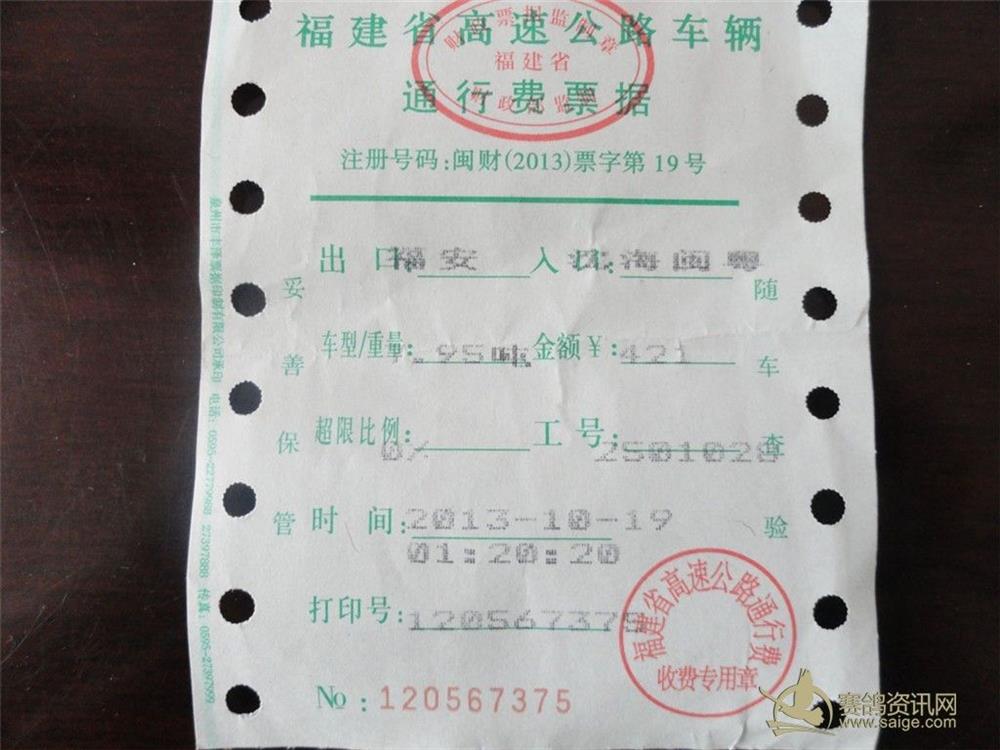 福建省高速公路车辆
通行费票据
福建省
注册号码:闽财(2013)票字第19号
出口:福安 入口:沈海闽粤
车型/重量: .95吨 金额¥:421
超限比例: 0% 工号: 2501028
时间:2013-10-19
01:20:20
打印号:120567375
No:120567375
妥善保管
随车查验
福建省高速公路通行费
收费专用章
泉州市丰泽票据印制有限公司承印 电话: 0595-22779888 27397888 传真: 0595-27397999
赛鸽资讯网
www.saige.com